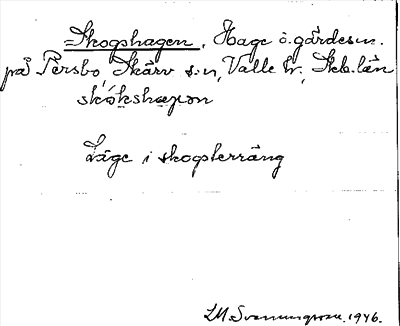 =Skogshagen, Hage ö. gärdesn.
på Persbo, Skärv s:n, Valle hr, Skb. län
skókshagon
Läge i skogsterräng
LM Svenungsson. 1946.